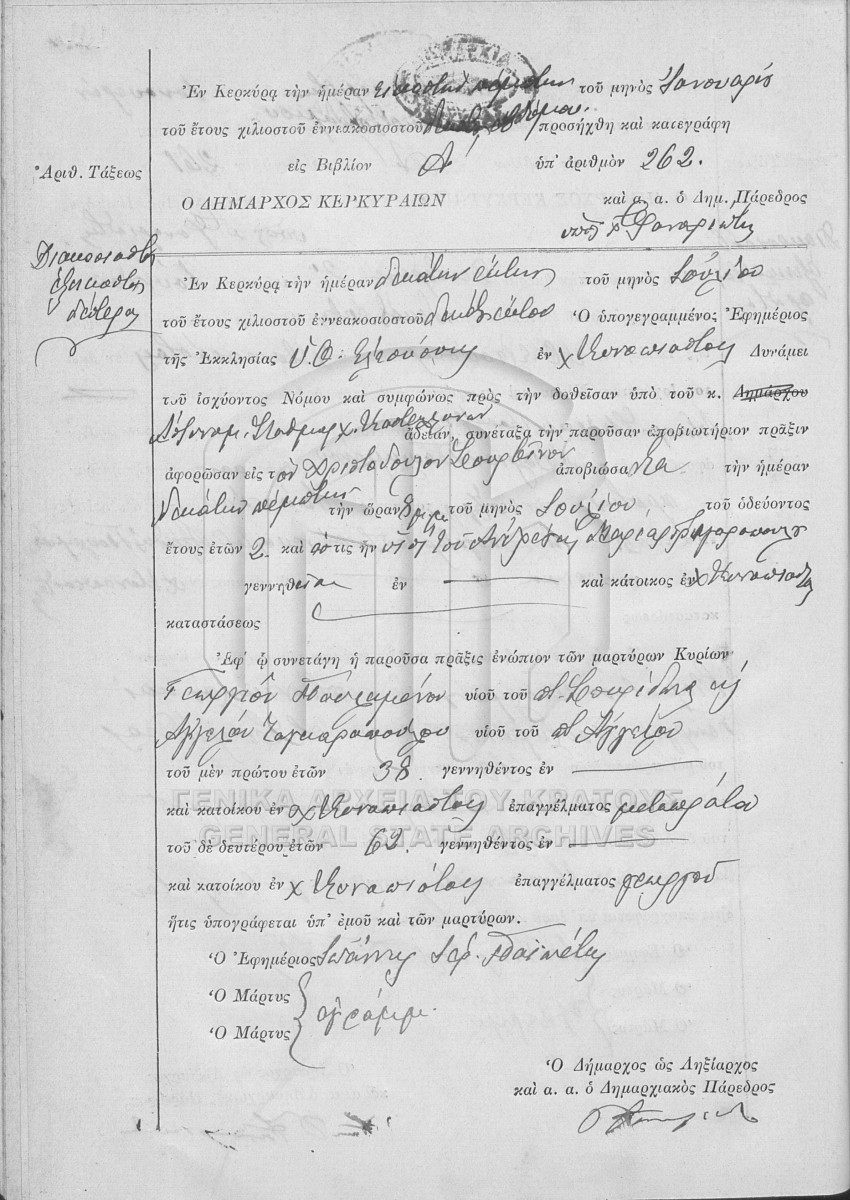 Ἐν Κερκύρᾳ τὴν ἡμέραν εἰκοστὴν πέμπτην τοῦ μηνὸς Ἰανουαρίου
τοῦ ἔτους χιλιοστοῦ ἐννεακοσιοστοῦ προσήχθη καὶ κατεγράφη
Ἀριθ. Τάξεως
εἰς Βιβλίον Α ὑπ' ἀριθμὸν 262.
Ο ΔΗΜΑΡΧΟΣ ΚΕΡΚΥΡΑΙΩΝ καὶ α. α. ὁ Δημ. Πάρεδρος
Διακοσιοστὸς
ἑξηκοστὸς
δεύτερος
Ἐν Κερκύρᾳ τὴν ἡμέραν δεκάτην ἕκτην τοῦ μηνὸς Ἰουλίου
τοῦ ἔτους χιλιοστοῦ ἐννεακοσιοστοῦ δεκάτου ἕκτου Ὁ ὑπογεγραμμένος Ἐφημέριος
τῆς Ἐκκλησίας Ὑ. Θ. Ἐλεούσης ἐν χ Κυναπιάσταις Δυνάμει
τοῦ ἰσχύοντος Νόμου καὶ συμφώνως πρὸς τὴν δοθεῖσαν ὑπὸ τοῦ κ. Δημάρχου
Ἀστυνομ. Σταθμάρχ. Καστελλάνων ἄδειαν, συνέταξα τὴν παροῦσαν ἀποβιωτήριον πρᾶξιν
ἀφορῶσαν εἰς τὸν Χριστόδουλον ἀποβιώσαντα τὴν ἡμέραν
δεκάτην πέμπτην τὴν ὥραν 8 μ.μ. τοῦ μηνὸς Ἰουλίου τοῦ ὁδεύοντος
ἔτους ἐτῶν 2 καὶ ὅστις ἦν υἱὸς τοῦ Ἀνδρέα καὶ Μαρίας
γεννηθεῖσα ἐν — καὶ κάτοικος ἐν χ Κυναπιάστας
καταστάσεως
Ἐφ' ᾧ συνετάγη ἡ παροῦσα πρᾶξις ἐνώπιον τῶν μαρτύρων Κυρίων
Γεωργίου υἱοῦ τοῦ π. Σπυρίδωνος καὶ
Ἀγγέλου υἱοῦ τοῦ π. Ἀγγέλου
τοῦ μὲν πρώτου ἐτῶν 38 γεννηθέντος ἐν —
καὶ κατοίκου ἐν χ Κυναπιάστας ἐπαγγέλματος μεταπράτου
ΓΕΝΙΚΑ ΑΡΧΕΙΑ ΤΟΥ ΚΡΑΤΟΥΣ
GENERAL STATE ARCHIVES
τοῦ δὲ δευτέρου ἐτῶν 62. γεννηθέντος ἐν —
καὶ κατοίκου ἐν χ Κυναπιάστας ἐπαγγέλματος γεωργοῦ
ἥτις ὑπογράφεται ὑπ' ἐμοῦ καὶ τῶν μαρτύρων.
Ὁ Ἐφημέριος Ἰωάννης Ἱερ.
Ὁ Μάρτυς
ἀγράμμ.
Ὁ Μάρτυς
Ὁ Δήμαρχος ὡς Ληξίαρχος
καὶ α. α. ὁ Δημαρχιακὸς Πάρεδρος